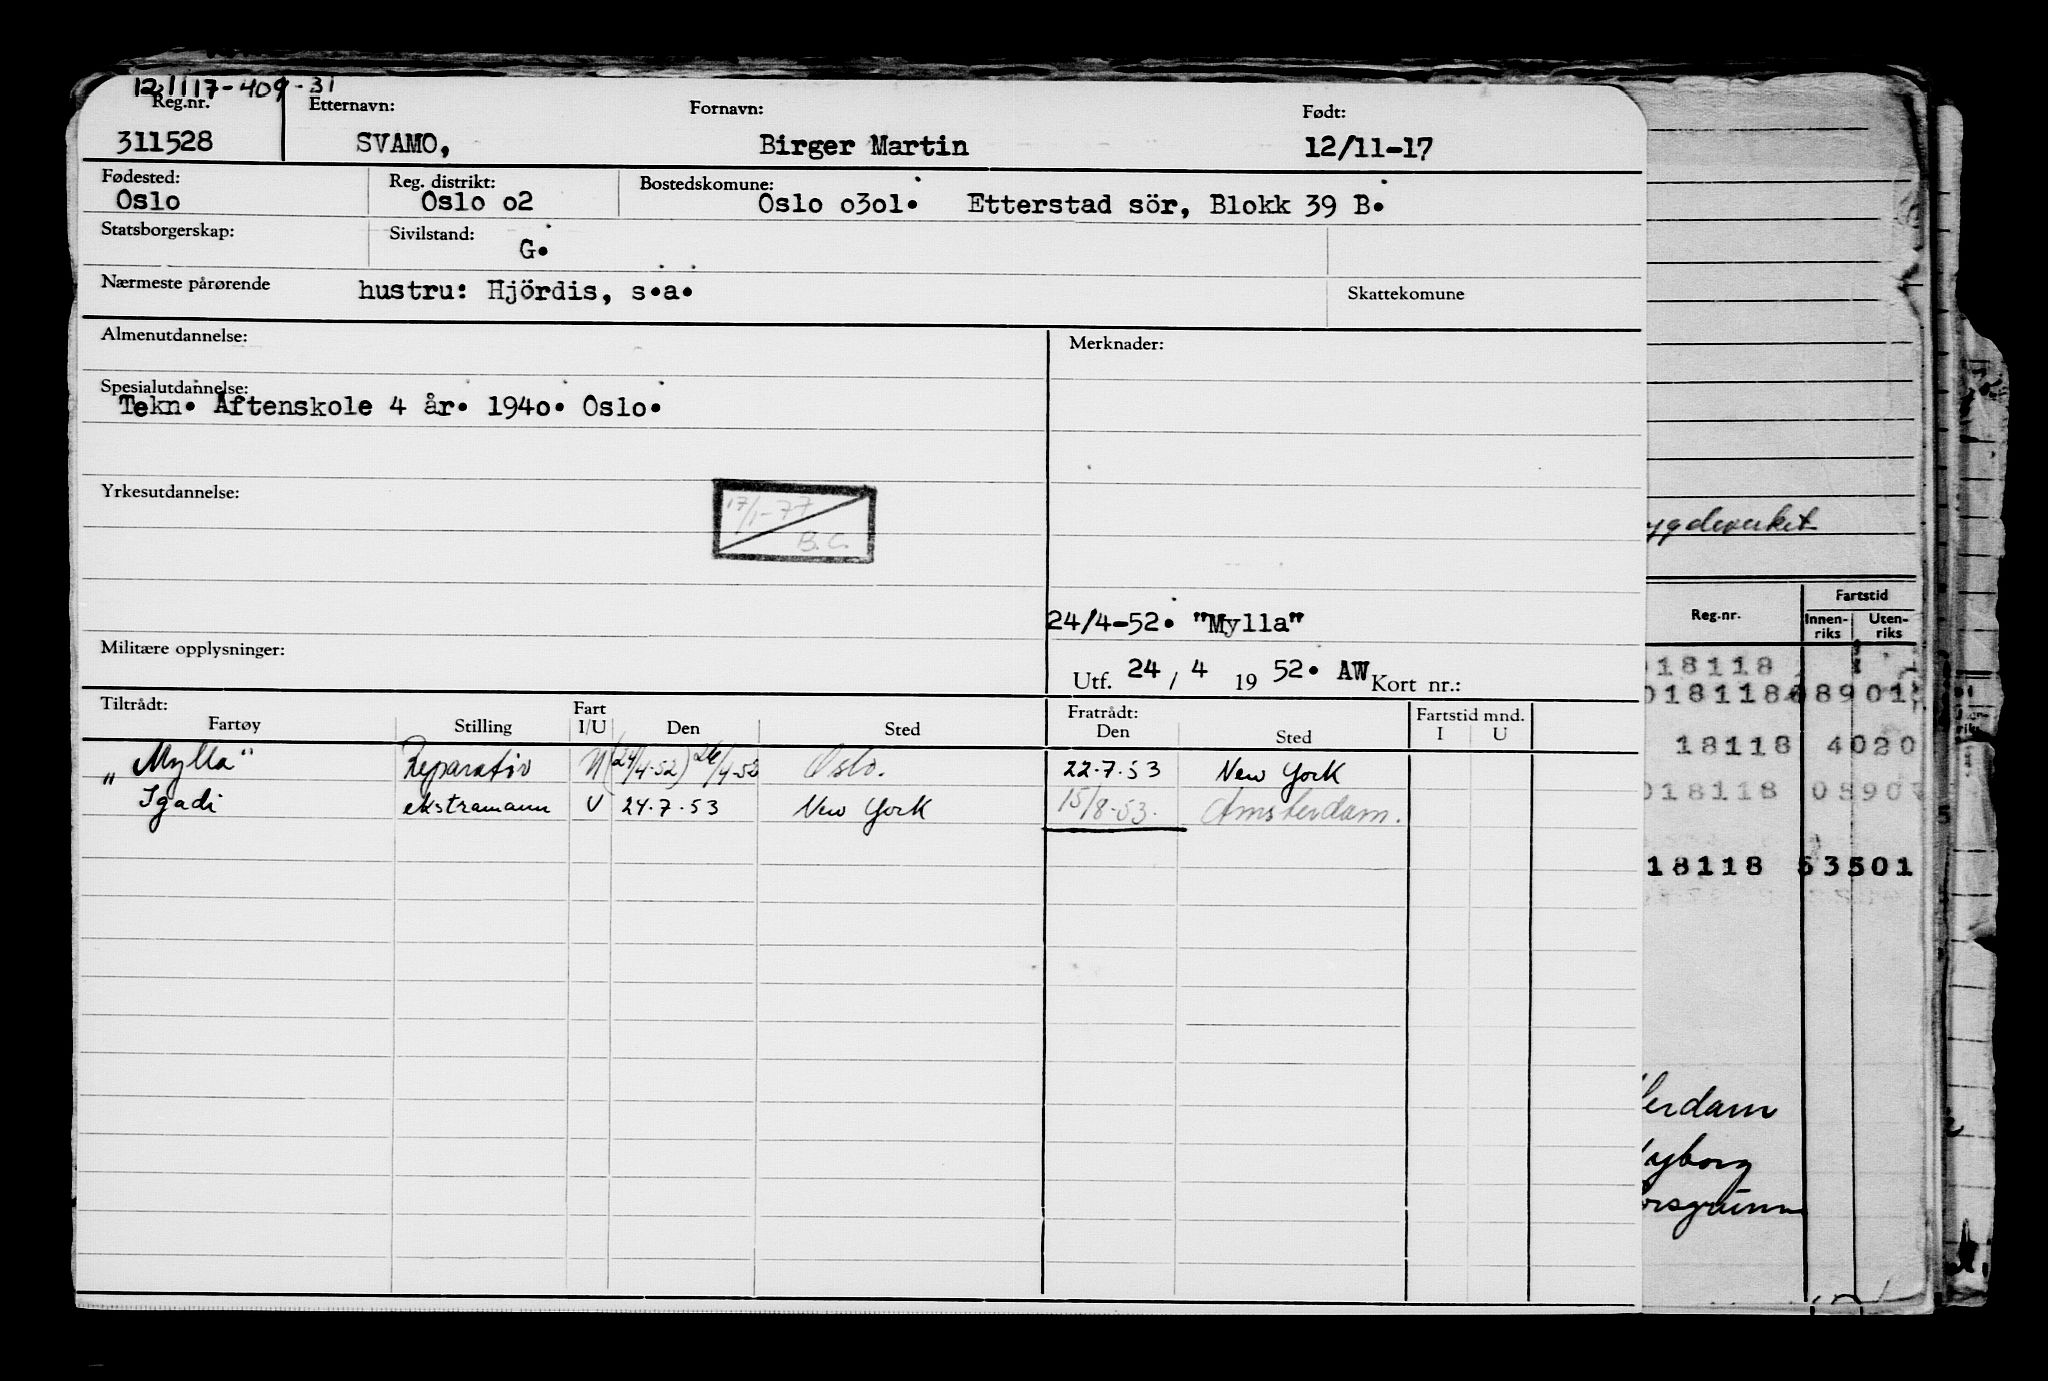 121117-409-31
Reg.nr. Etternavn: Fornavn: Født:
311528 SVAMO, Birger Martin 12/11-17
Fødested: Reg. distrikt: Bostedskomune:
Oslo Oslo o2 Oslo o3o1. Etterstad sör, Blokk 39 B.
Statsborgerskap: Sivilstand:
G.
Nærmeste pårørende hustru: Hjördis, s.a. Skattekomune
Almenutdannelse: Merknader:
Spesialutdannelse:
Tekn. Aftenskole 4 år. 194o. Oslo.
Yrkesutdannelse:
17/1-77
B.C.
24/4-52. "Mylla"
Militære opplysninger:
Utf. 24 / 4 19 52. AW Kort nr.:
Tiltrådt: Fratrådt:
Fartøy Stilling Fart I/U Den Sted Den Sted Fartstid mnd. I U
„Mylla" Reparatör U (24/4-52) 26/4-52 Oslo. 22.7.53 New York
Igadi ekstramann U 24.7.53 New York 15/8-53. Amsterdam.
ygdeverket
Reg.nr. Fartstid
Innen-riks Uten-riks
018118
018118 08901
18118 4020
018118 0890
18118 53501
terdam
yborg
orsgrunn